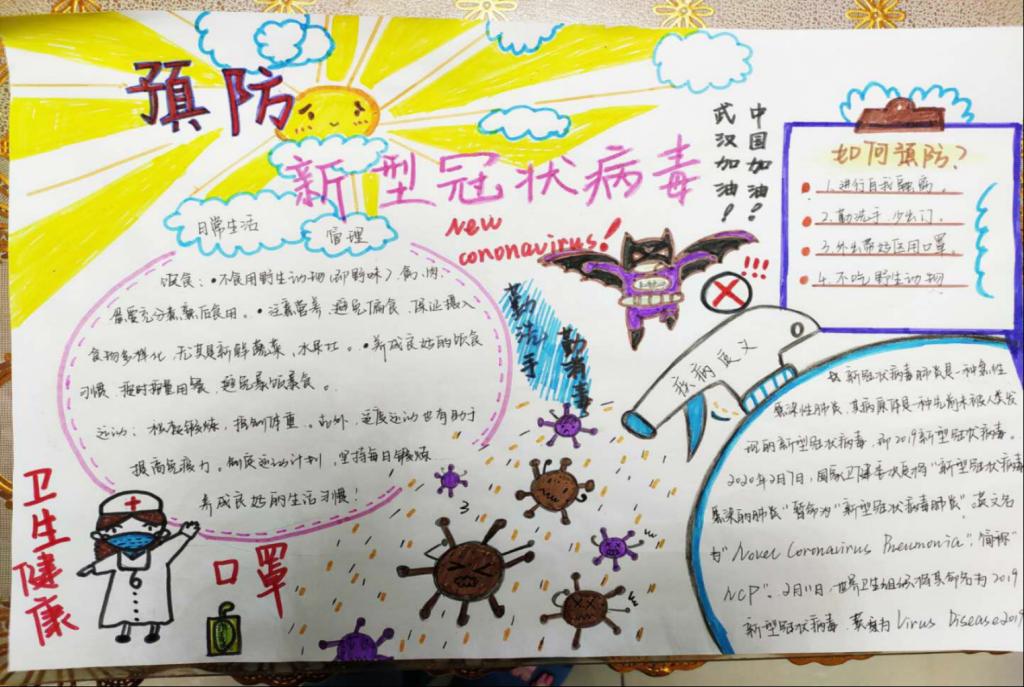 预防
新型冠状病毒
new
coronavirus!
武汉加油!
中国加油!
如何预防?
1.进行自我隔离。
2.勤洗手.少出门。
3.外出带好医用口罩。
4.不吃野生动物
日常生活
管理
饮食:•不食用野生动物(即野味)禽、肉、
蛋要充分煮熟后食用。•注意营养,避免偏食,保证摄入
食物多样化,尤其是新鲜蔬菜,水果灶。•养成良好的饮食
习惯,按时按量用餐,避免暴饮暴食。
运动:积极锻炼,控制体重。另外,适度运动也有助于
提高免疫力。制度运动计划,坚持每日锻炼
养成良好的生活习惯!
勤洗手
勤消毒
!!!
疾病定义
新型冠状病毒肺炎是一种急性
感染性肺炎,其病原体是一种先前未被人类发
现的新型冠状病毒,即2019新型冠状病毒。
2020年2月7日,国家卫健委决定将"新型冠状病毒
感染的肺炎"暂命为"新型冠状病毒肺炎",英文名
为"Novel Coronavirus Pneumonia",简称"
NCP"。2月11日,世界卫生组织将其命名为2019
新型冠状病毒,英文为Virus Disease2019
卫生健康
口罩